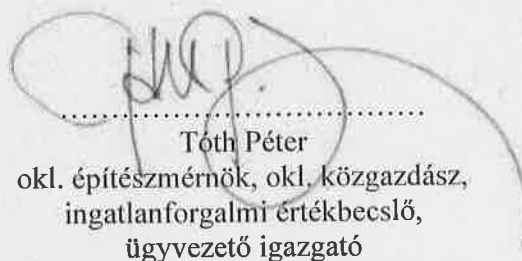 Tóth Péter
okl. építészmérnök, okl. közgazdász,
ingatlanforgalmi értékbecslő,
ügyvezető igazgató